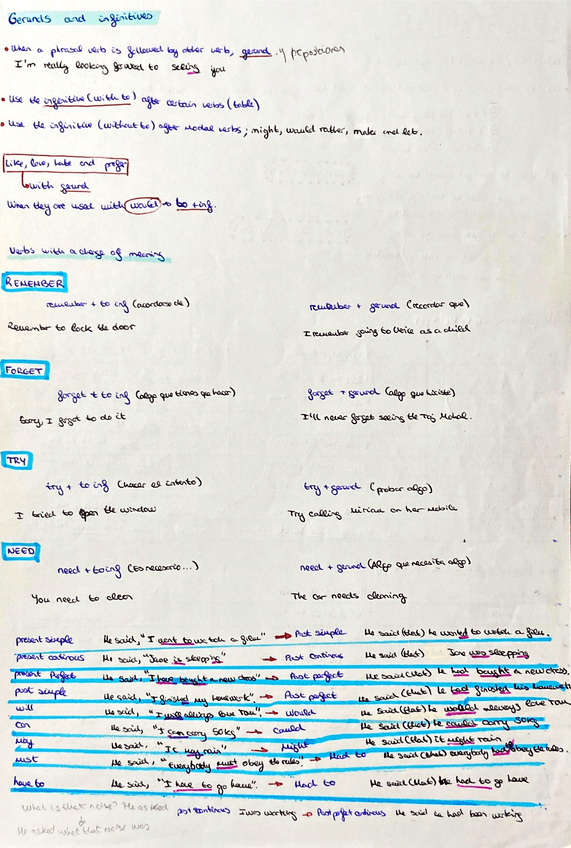 Gerunds and infinitives
• When a phrasal verb is followed by other verb, gerund. y preposiciones
I'm really looking forward to seeing you
• Use the infinitive (with to) after certain verbs (table)
• Use the infinitive (without to) after Modal verbs; might, would rather, make and let.
Like, love, hate and prefer
with gerund
When they are used with would → to + inf.
Verbs with a change of meaning
REMEMBER
remember + to inf (acordarse de) remember + gerund (recordar que)
Remember to lock the door I remember going to Venice as a child
FORGET
forget + to inf (algo que tienes que hacer) forget + gerund (algo que hiciste)
Sorry, I forgot to do it I'll never forget seeing the Taj Mahal.
TRY
try + to inf (hacer el intento) try + gerund (probar algo)
I tried to open the window Try calling Miriam on her mobile
NEED
need + to inf (Es necesario...) need + gerund (Algo que necesita algo)
You need to clean The car needs cleaning
present simple He said, "I want to watch a film" → Past simple He said (that) he wanted to watch a film.
present continous He said, "Jane is sleeping" → Past continous He said (that) Jane was sleeping
present Perfect He said, "I have bought a new dress" → Past perfect He said (that) he had bought a new dress.
past simple He said, "I finished my homework" → Past perfect He said (that) he had finished his homework
will He said, "I will always love Tom" → Would He said (that) he would always love Tom
can He said, "I can carry 50kg" → Could He said (that) he could carry 50kg
may He said, "It may rain" → Might He said (that) it might rain
must He said, "Everybody must obey the rules" → Had to He said (that) everybody had to obey the rules.
have to He said, "I have to go home" → Had to He said (that) he had to go home
What is that noise? He asked
He asked what that noise was
past continous I was working → Past perfect continous He said he had been working